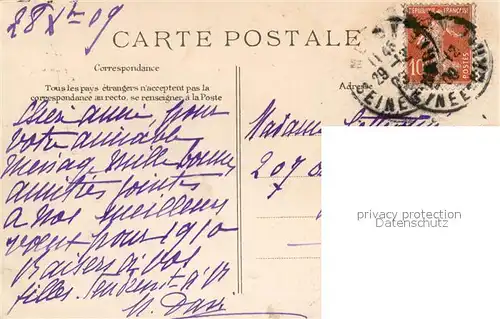 28 Xbre 09
CARTE POSTALE
Correspondance
Tous les pays étrangers n'acceptent pas la
correspondance au recto, se renseigner à la Poste
Adresse
RÉPUBLIQUE FRANÇAISE
10
Madame
207
Chère amie, pour
votre aimable
message mille bonnes
amitiés jointes
à nos meilleurs
vœux pour 1910
Baisers à vos
filles.
privacy protection